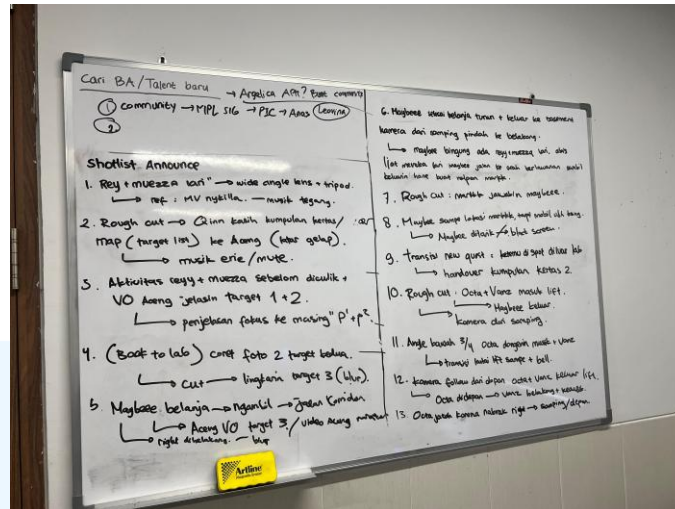 Cari BA/Talent baru → Angelica APH? Buat community
① community → MPL S16 → PIC → Apas Leovina
②
Shotlist Announce
1. Rey + muezza lari" → wide angle lens + tripod.
↳ ref: MV nykilla. — musik tegang.
2. Rough cut → Qinn kasih kumpulan kertas/
map (target list) ke Aceng (latar gelap).
↳ musik erie/mute.
3. Aktivitas reyy + muezza sebelum diculik +
VO Aceng jelasin target 1 + 2.
↳ penjelasan fokus ke masing" P¹ + P².
4. (Back to lab) coret foto 2 target kedua.
↳ cut → lingkarin target 3 (blur).
5. Maybeee belanja → ngambil → Jalan Koridor
↳ Aceng VO target 3. / video Aceng
↳ right dibelakang. — blur
Artline
6. Maybeee selesai belanja turun + keluar ke basement
kamera dari samping pindah ke belakang.
↳ maybee bingung ada reyy + muezza lari, abis
liat mereka lari maybee jalan ke arah berlawanan sambil
7. Rough cut: markkk jawabin maybeee.
8. Maybee sampe lokasi markkk, tapi mobil
↳ Maybee ditarik → blat screen.
9. transisi new quest: ketemu di spot diluar lab
↳ handover kumpulan kertas 2.
10. Rough cut. Octa + Vanz masuk lift.
↳ Maybeee keluar.
↳ kamera dari samping.
11. Angle bawah 3/4 Octa dongorin musik + vanz
↳ transisi lantai lift sampe + bell.
12. kamera follow dari depan octa + vanz keluar lift.
↳ Octa didepan → vanz belakang +
13. Octa jatuh karena nabrak right → samping/depan.